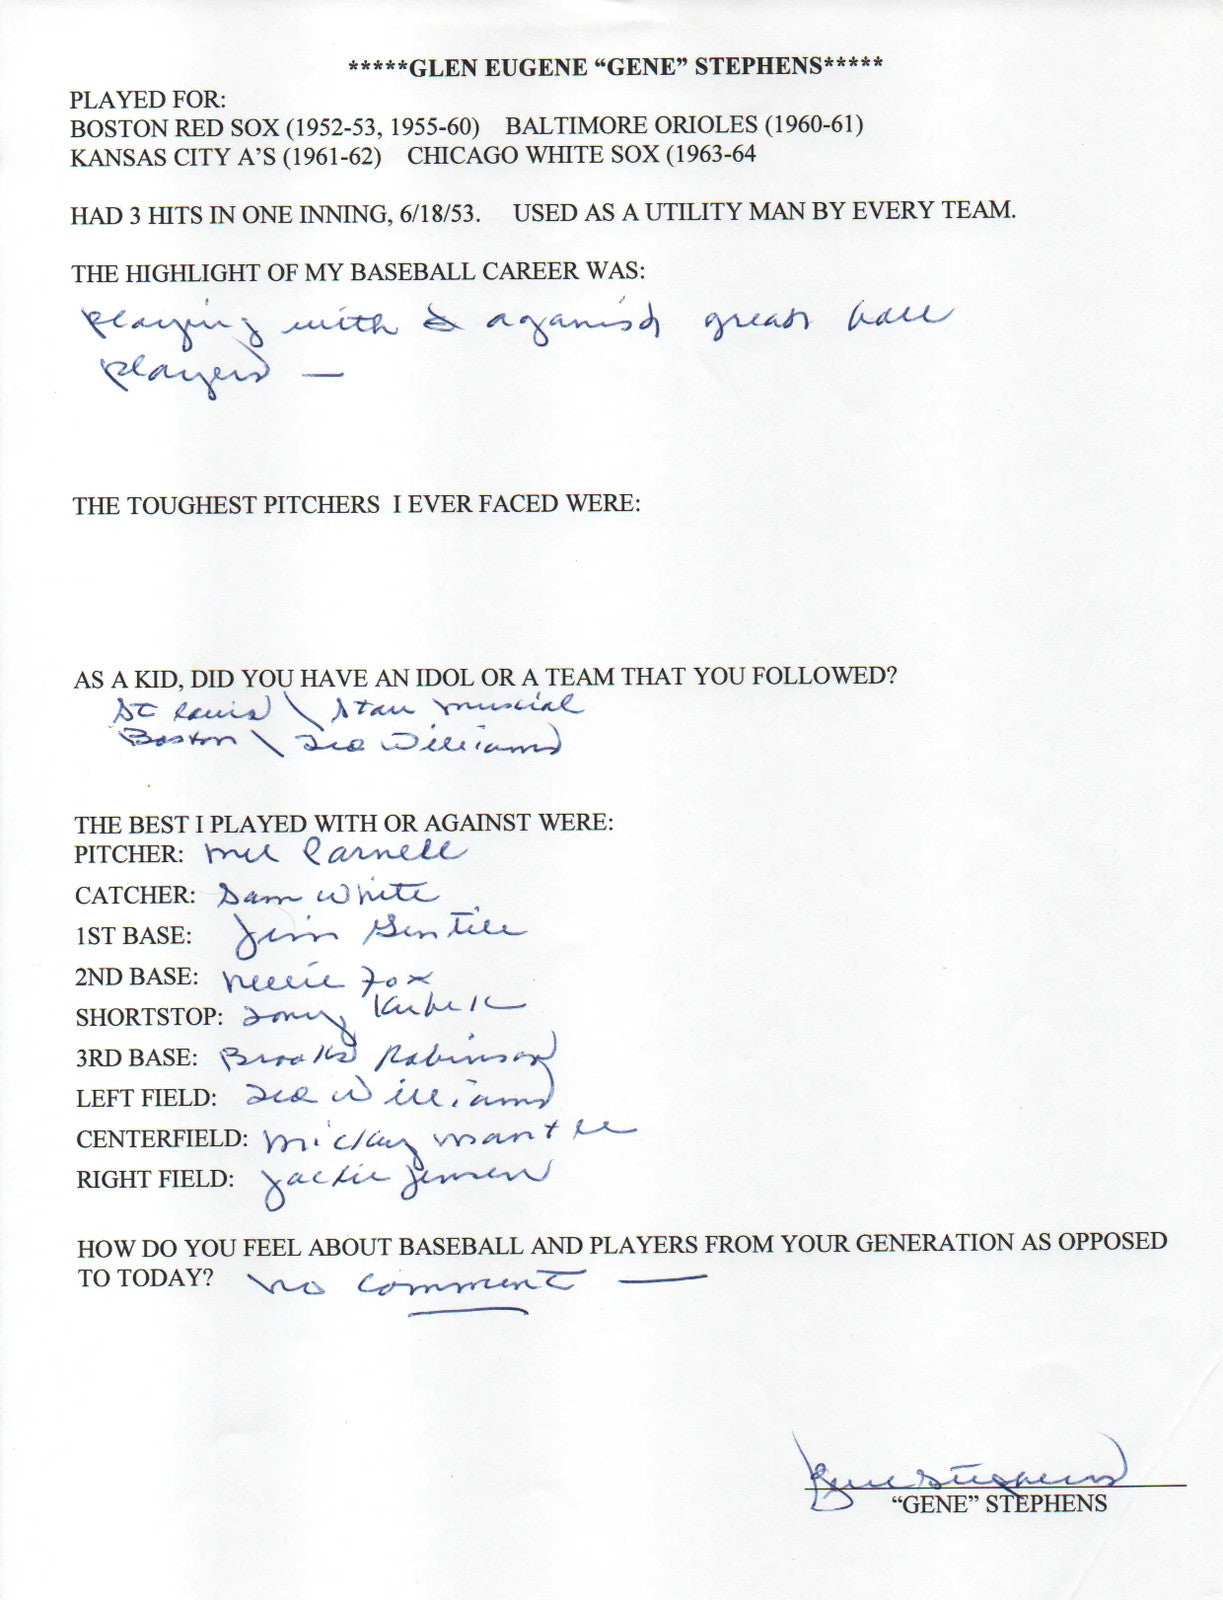 *****GLEN EUGENE “GENE” STEPHENS*****
PLAYED FOR:
BOSTON RED SOX (1952-53, 1955-60) BALTIMORE ORIOLES (1960-61)
KANSAS CITY A’S (1961-62) CHICAGO WHITE SOX (1963-64
HAD 3 HITS IN ONE INNING, 6/18/53. USED AS A UTILITY MAN BY EVERY TEAM.
THE HIGHLIGHT OF MY BASEBALL CAREER WAS:
playing with & aganist great ball
players —
THE TOUGHEST PITCHERS I EVER FACED WERE:
AS A KID, DID YOU HAVE AN IDOL OR A TEAM THAT YOU FOLLOWED?
St Louis \ Stan Musial
Boston \ Ted Williams
THE BEST I PLAYED WITH OR AGAINST WERE:
PITCHER: Mel Parnell
CATCHER: Sam White
1ST BASE: Jim Gentile
2ND BASE: Nellie Fox
SHORTSTOP: Tony Kubek
3RD BASE: Brooks Robinson
LEFT FIELD: Ted Williams
CENTERFIELD: Mickey Mantle
RIGHT FIELD: Jackie Jensen
HOW DO YOU FEEL ABOUT BASEBALL AND PLAYERS FROM YOUR GENERATION AS OPPOSED
TO TODAY? No comment —
Gene Stephens
“GENE” STEPHENS